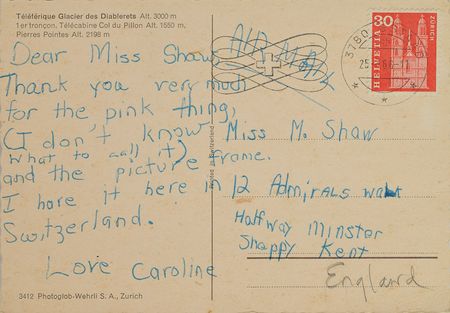 Téléférique Glacier des Diablerets Alt. 3000 m
1er tronçon. Télécabine Col du Pillon Alt. 1550 m,
Pierres Pointes Alt. 2198 m
Dear Miss Shaw,
Thank you very much
for the pink thing,
(I don't know
what to call it)
and the picture frame.
I have it here in
Switzerland.
Love Caroline
3412 Photoglob-Wehrli S. A., Zurich
AIR MAIL
3780
30
HELVETIA
ZÜRICH
Miss M. Shaw
12 Admirals walk
Halfway Minster
Sheppy Kent
England